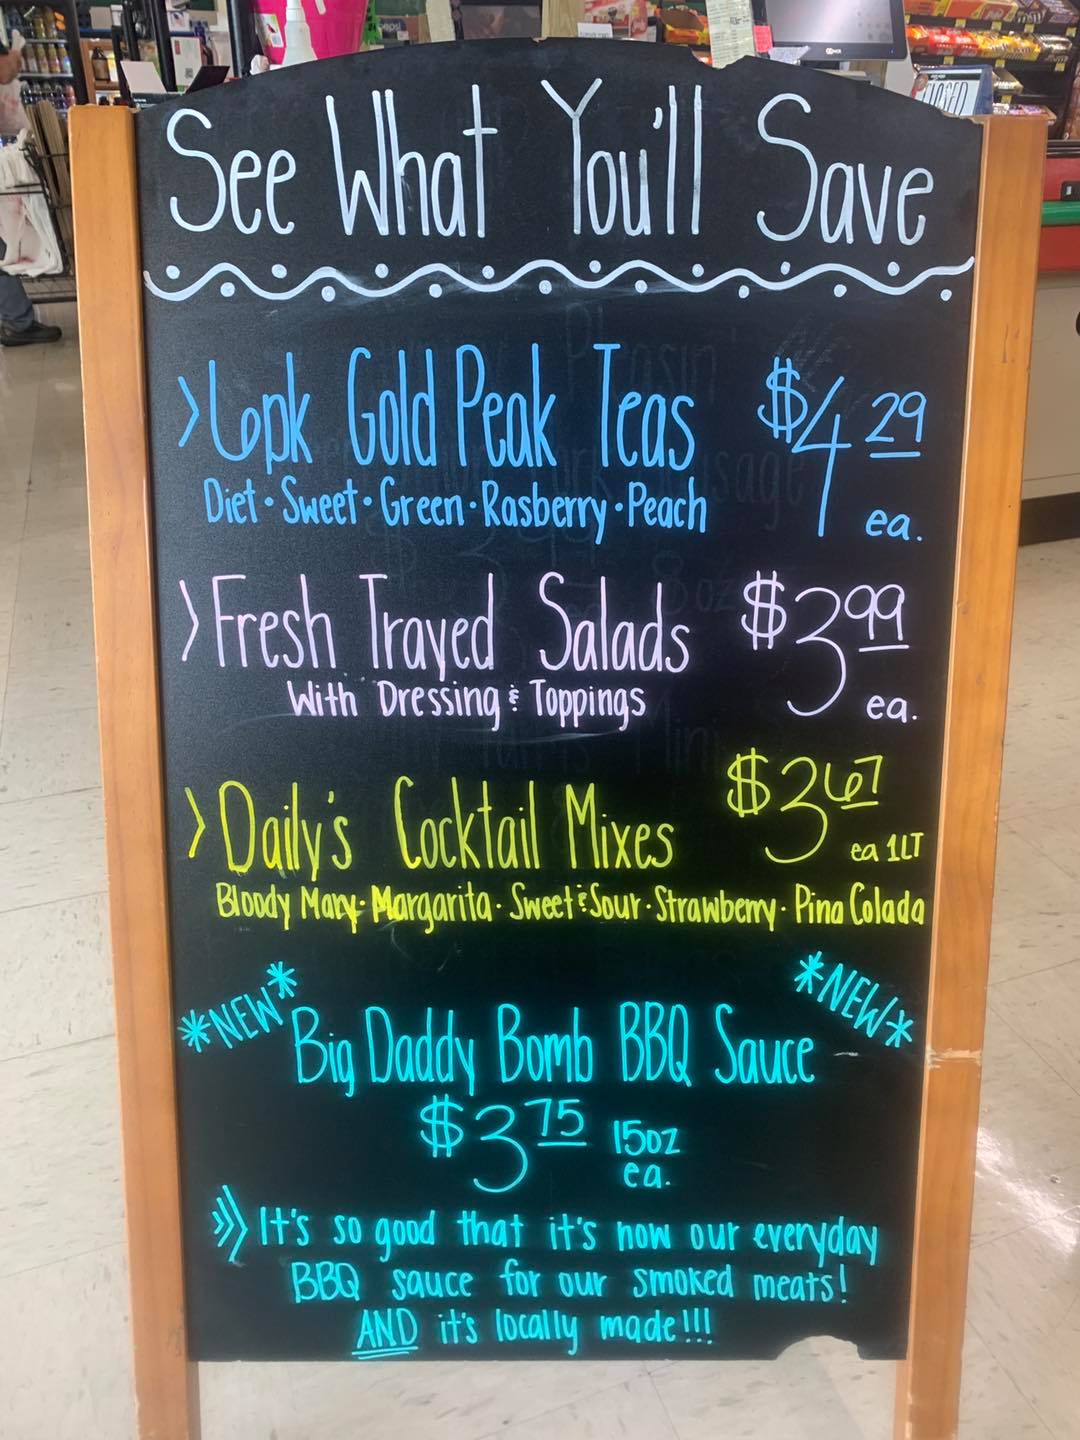 See What You'll Save
>6pk Gold Peak Teas $4.29 ea.
Diet · Sweet · Green · Rasberry · Peach
>Fresh Trayed Salads $3.99 ea.
With Dressing & Toppings
>Daily's Cocktail Mixes $3.67 ea 1LT
Bloody Mary · Margarita · Sweet & Sour · Strawberry · Pina Colada
*NEW* *NEW*
Big Daddy Bomb BBQ Sauce
$3.75 15oz ea.
>>> It's so good that it's now our everyday
BBQ sauce for our smoked meats!
AND it's locally made!!!
CLOSED